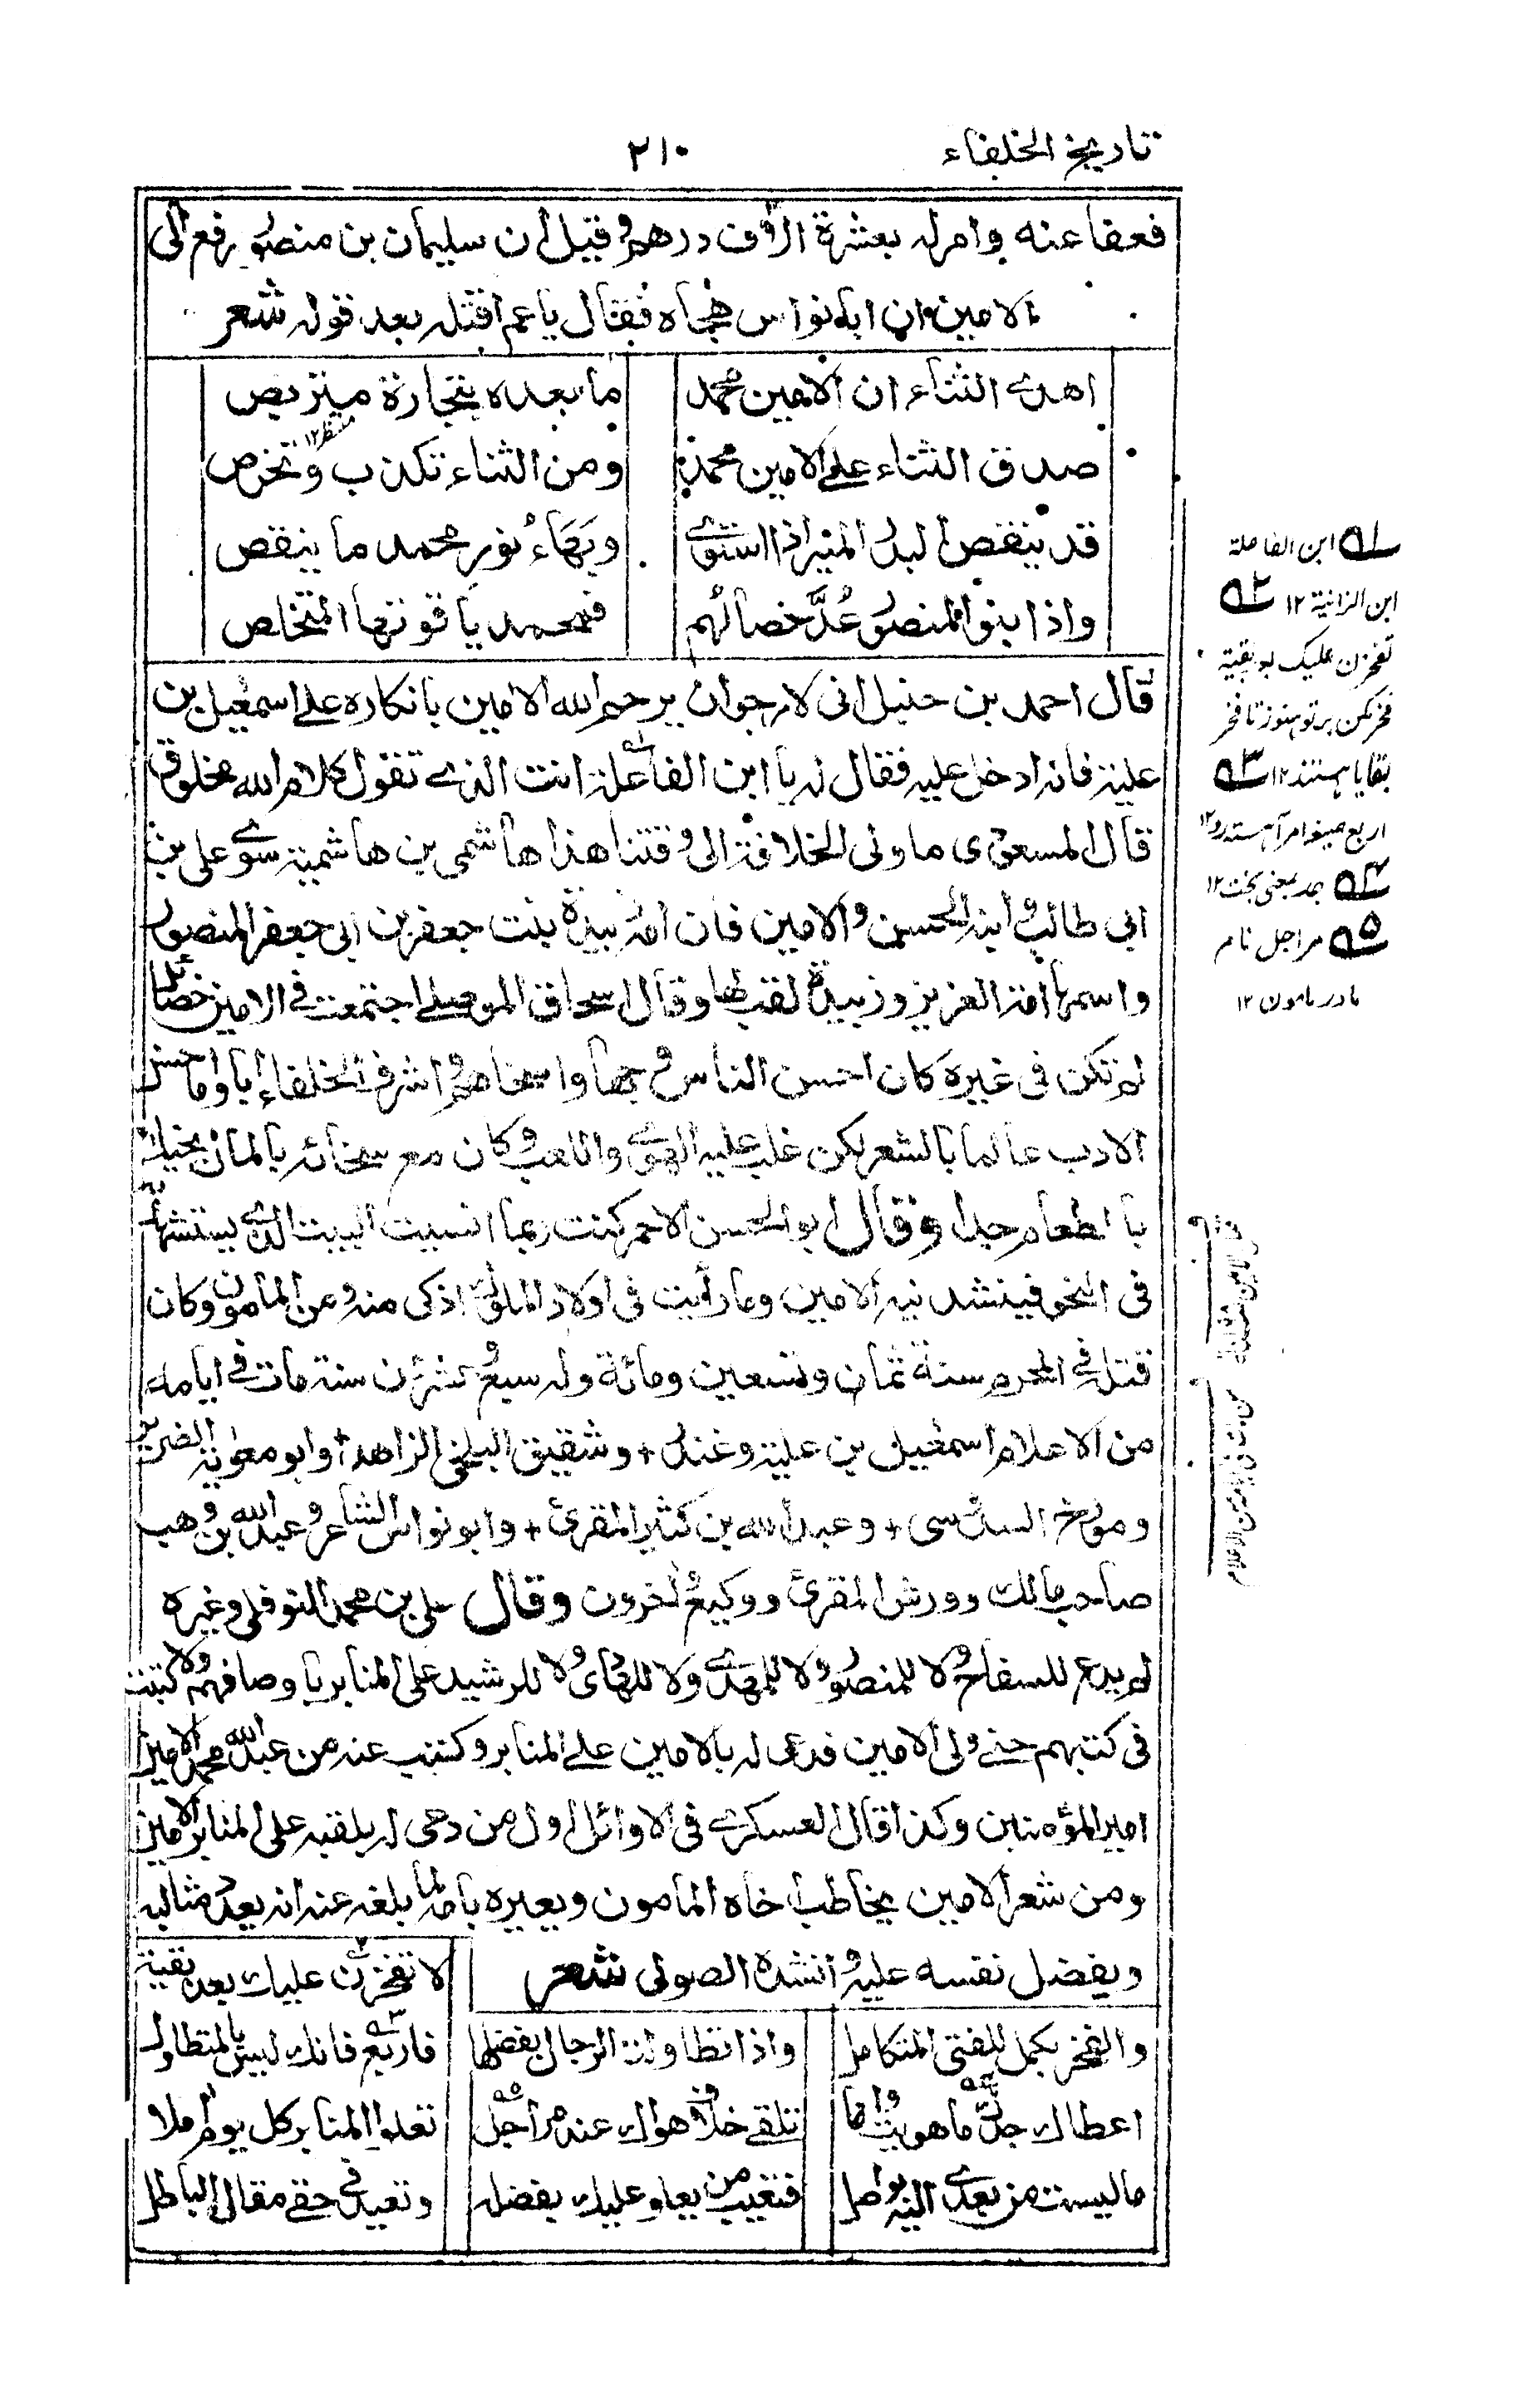 تاريخ الخلفاء ٢١٠
فعفا عنه وامر له بعشرة الاف درهم وقيل ان سليمان بن منصور رفع الى
الامين ان ابا نواس هجاه فقال يا عم اقتله بعد قوله شعر
اهدى الثناء ان الامين محمد ما بعده بتجارة متربص
منتظر ١٢
صدق الثناء على الامين محمد ومن الثناء تكذب وتخرص
قد ينقص البدر المنير اذا استوى وبهاء نور محمد ما ينقص
واذا بنو المنصور عُدَّ خصالهم فمحمد ياقوتها المتخلص
قال احمد بن حنبل انى لارجو ان يرحم الله الامين بانكاره على اسمعيل بن
علية فانه ادخل عليه فقال له يا ابن الفاعلة انت الذى تقول كلام الله مخلوق
قال المسعودى ما ولى الخلافة الى وقتنا هذا هاشمى بن هاشمية سوى على بن
ابي طالب وابنه الحسن والامين فان امه زبيدة بنت جعفر بن ابى جعفر المنصور
واسمها امة العزيز وزبيدة لقب لها وقال اسحاق الموصلى اجتمعت فى الامين خصائل
لم تكن فى غيره كان احسن الناس وجها واسخاهم واشرف الخلفاء ابا واما حسن
الادب عالما بالشعر لكن غلب عليه الهوى واللعب وكان مع سخائه بالمال بخيلا
بالطعام جدا وقال ابو الحسن الاحمر كنت ربما انسيت البيت الذى يستشهد به
فى النحو فينشدنيه الامين وما رأيت فى اولاد الملوك اذكى منه ومن المامون وكان
قتله فى المحرم سنة ثمان وتسعين ومائة وله سبع وعشرون سنة مات فى ايامه
من الاعلام اسمعيل بن علية وغندر + وشقيق البلخى الزاهد + وابو معاوية الضرير
ومورخ السدوسى + وعبد الله بن كثير المقرئ + وابو نواس الشاعر وعبد الله بن وهب
صاحب مالك وورش المقرئ ووكيع واخرون وقال على بن محمد النوفلى وغيره
لم يدع للسفاح ولا للمنصور ولا للمهدى ولا للهادى ولا للرشيد على المنابر باوصافهم ولا كتبت
فى كتبهم حتى ولى الامين فدعى له بالامين على المنابر وكتب عنه من عبد الله محمد الامين
امير المؤمنين وكذا قال العسكرى فى الاوائل اول من دعى له بلقبه على المنابر الامين
ومن شعر الامين يخاطب اخاه المامون ويعيره بامه لما بلغه عنه انه يعدد مثالبه
ويفضل نفسه عليه وانشده الصولى شعر لا تفخرن عليك بعد بقية
والفخر يكمل للفتى المتكامل واذا تطاولت الرجال بفضلها فاربع فانك ليس بالمتطاول
اعطاك جدك ما هويت وانما تلقى خلاف هواك عند مراجل تعلوا المنابر كل يوم املا
ما ليست من بعدى اليه بواصل فتعيب من يعلو عليك بفضله وتعيد فى حقى مقال الباطل
١ ابن الفاعلة
ابن الزانية ١٢ ٢
تفخرن عليك بعد بقية
فخر مكن بر تو ہنوز تا فخر
بقايا ہستند ١٢ ٣
اربع صيغه امر آہسته رو ١٢
٤ جد بمعنى بخت ١٢
٥ مراجل نام
مادر مامون ١٢